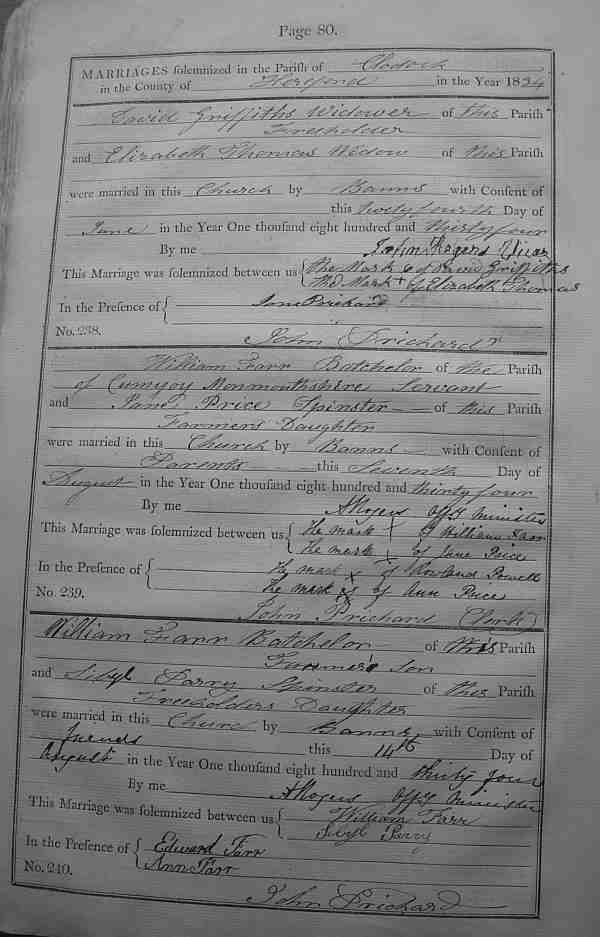 Page 80.
MARRIAGES solemnized in the Parish of Clodock
in the County of Hereford in the Year 1834
David Griffiths Widower of this Parish
Freeholder
and Elizabeth Thomas Widow of this Parish
were married in this Church by Banns with Consent of
this twenty fourth Day of
June in the Year One thousand eight hundred and thirty four
By me John Rogers Vicar
This Marriage was solemnized between us { The Mark of David Griffiths
The Mark + of Elizabeth Thomas
In the Presence of { Jane Prichard
No. 238.
John Prichard
William Farr Batchelor of the Parish
of Cumyoy Monmouthshire Servant
and Jane Price Spinster of this Parish
Farmers Daughter
were married in this Church by Banns with Consent of
Parents this Seventh Day of
August in the Year One thousand eight hundred and thirty four
By me ARogers Offg Minister
This Marriage was solemnized between us { The mark of William Farr
The mark x of Jane Price
In the Presence of { The mark x of Rowland Powell
The mark x of Ann Price
No. 239.
John Prichard Clerk
William Farr Batchelor of this Parish
Farmer's Son
and Sibyl Parry Spinster of this Parish
Freeholders Daughter
were married in this Church by Banns with Consent of
this 14th Day of
August in the Year One thousand eight hundred and thirty four
By me ARogers Offg Minister
This Marriage was solemnized between us { William Farr
Sibyl Parry
In the Presence of { Edward Farr
Ann Farr
No. 240.
John Prichard